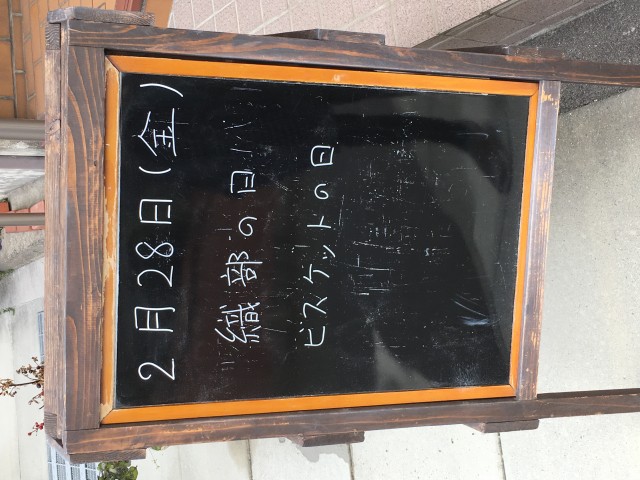 2月28日(金)
織部の日
ビスケットの日